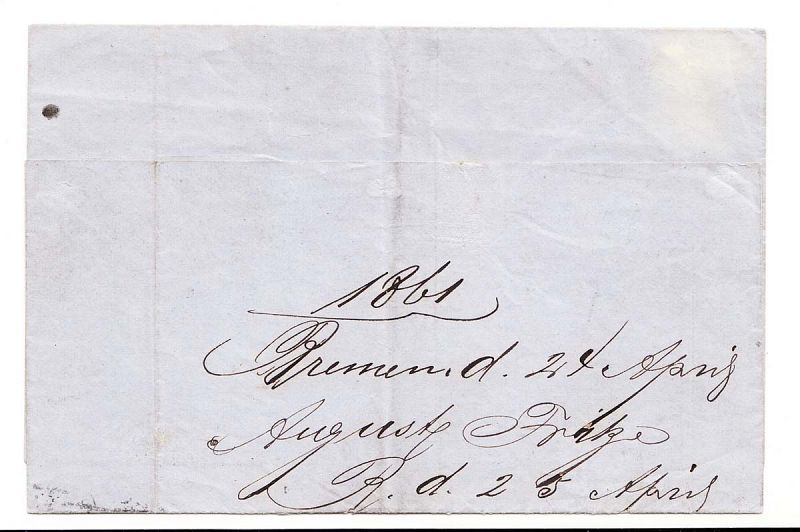 1861
Bremen. d. 24 April
August Fritze
R. d. 25 April